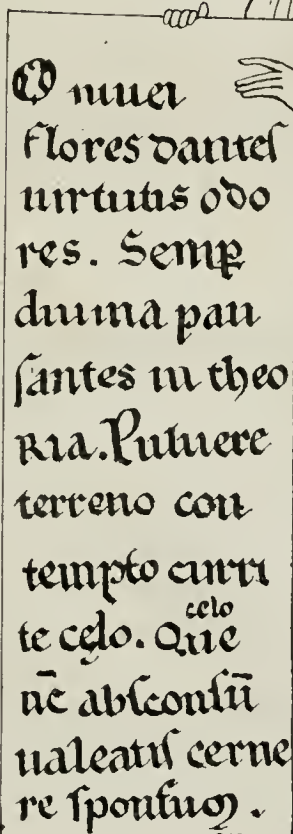 O niuei
flores danteſ
uirtutis odo
res. Semꝑ
diuina pau
ſantes in theo
RIA. Puluere
terreno con
tempto curri
celo
te cęlo. Que
nc̄ abſconſū
ualeatiſ cerne
re ſponſum.